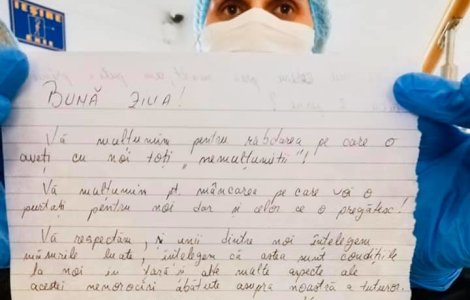 IEȘIRE
EXIT
BUNĂ ZIUA!
Vă mulțumim pentru răbdarea pe care o
aveți cu noi toți „nemulțumiții"!
Vă mulțumim pt. mâncarea pe care voi o
purtați pentru noi dar și celor ce o pregătesc!
Vă respectăm, și unii dintre noi înțelegem
măsurile luate, înțelegem că astea sunt condițiile
la noi în țară și alte multe aspecte ale
acestei nenorociri abătute asupra noastră a tuturor.